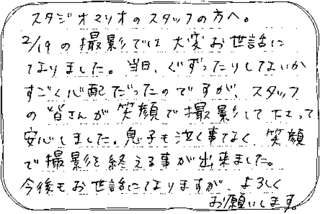 スタジオマリオのスタッフの方へ。
2/19の撮影では大変お世話に
なりました。当日、ぐずったりしないか
すごく心配だったのですが、スタッフ
の皆さんが笑顔で撮影して下さって
安心しました。息子も泣く事なく笑顔
で撮影を終える事が出来ました。
今後もお世話になりますが、よろしく
お願いします。